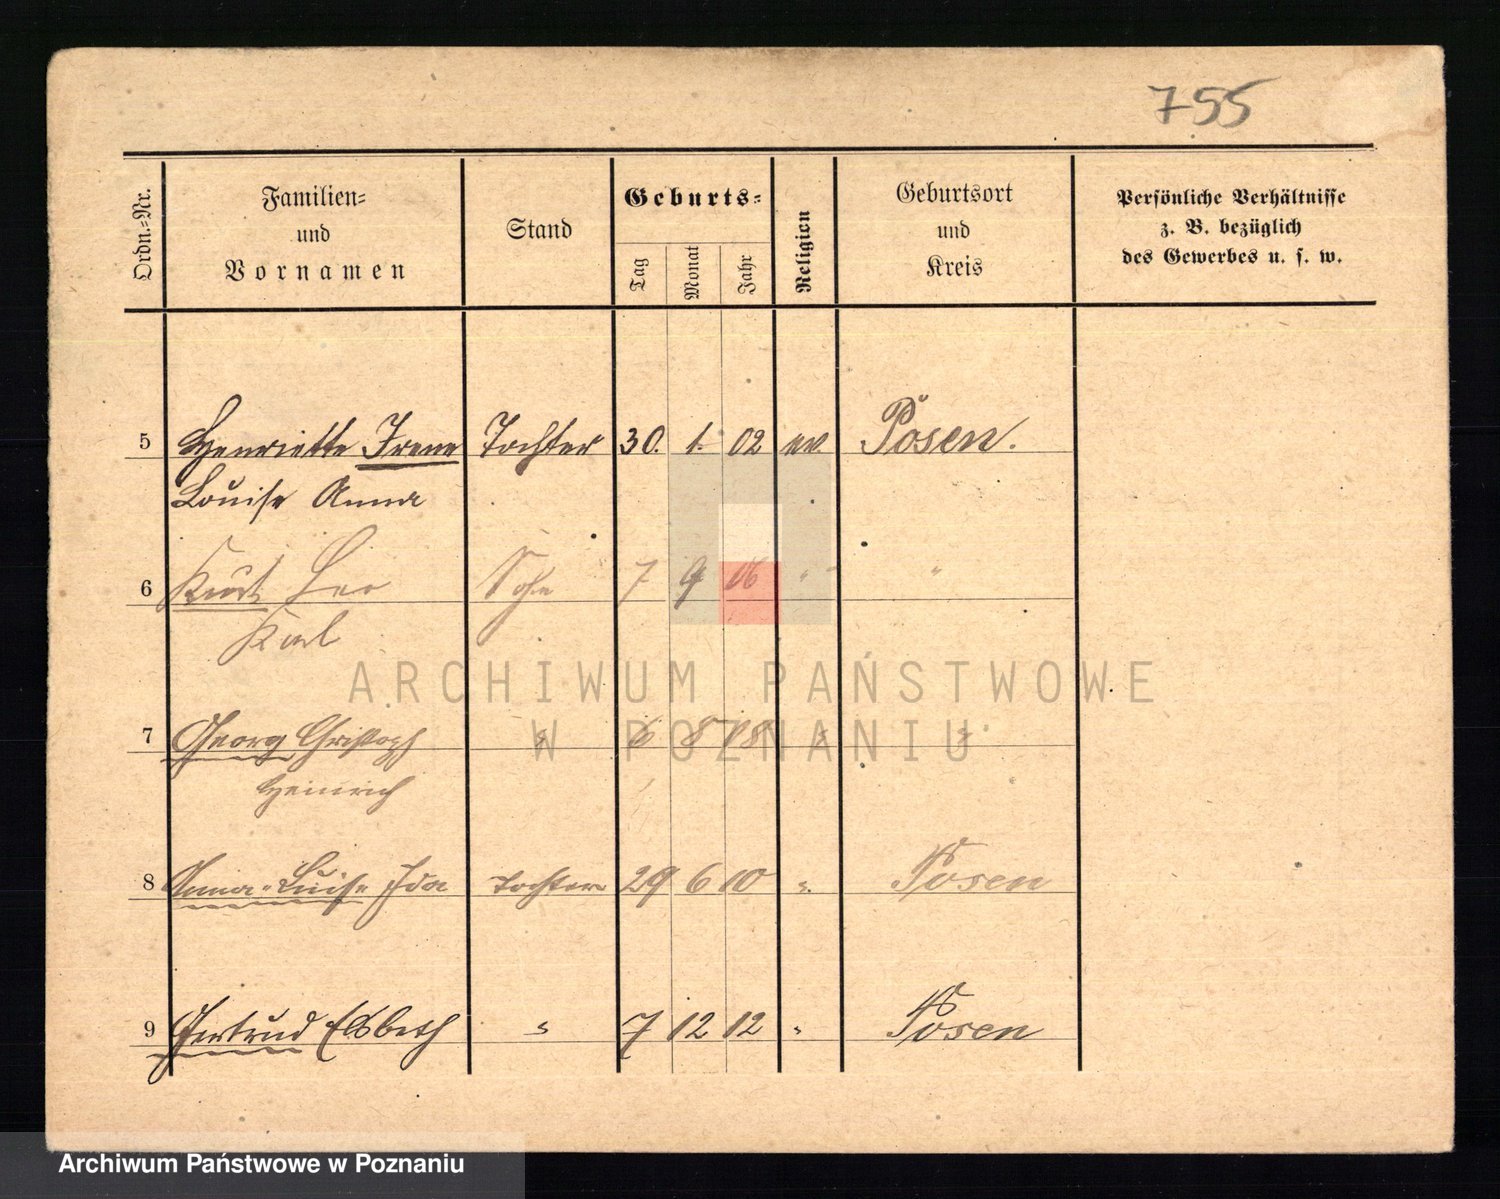 755
Ordn.-Nr.
Familien-
und
Vornamen
Stand
Geburts-
Tag
Monat
Jahr
Religion
Geburtsort
und
Kreis
Persönliche Verhältnisse
z. B. bezüglich
des Gewerbes u. s. w.
5 Henriette Irene Tochter 30. 1. 02 ev. Posen.
Louise Anna
6 Kurt Leo Sohn 7 9 06 " "
Karl
7 Georg Christoph " 6 8 " "
Heinrich
8 Anna-Luise Ida Tochter 29 6 10 " Posen
9 Gertrud Elsbeth " 7 12 12 " Posen
ARCHIWUM PAŃSTWOWE
W POZNANIU
Archiwum Państwowe w Poznaniu